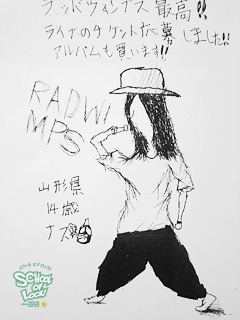 ラッドウィンプス 最高!!
ライブのチケット応募しました!!
アルバムも買います!!
RADWI
MPS
山形県
14歳
ナス
SCHOOL
OF
LOCK!